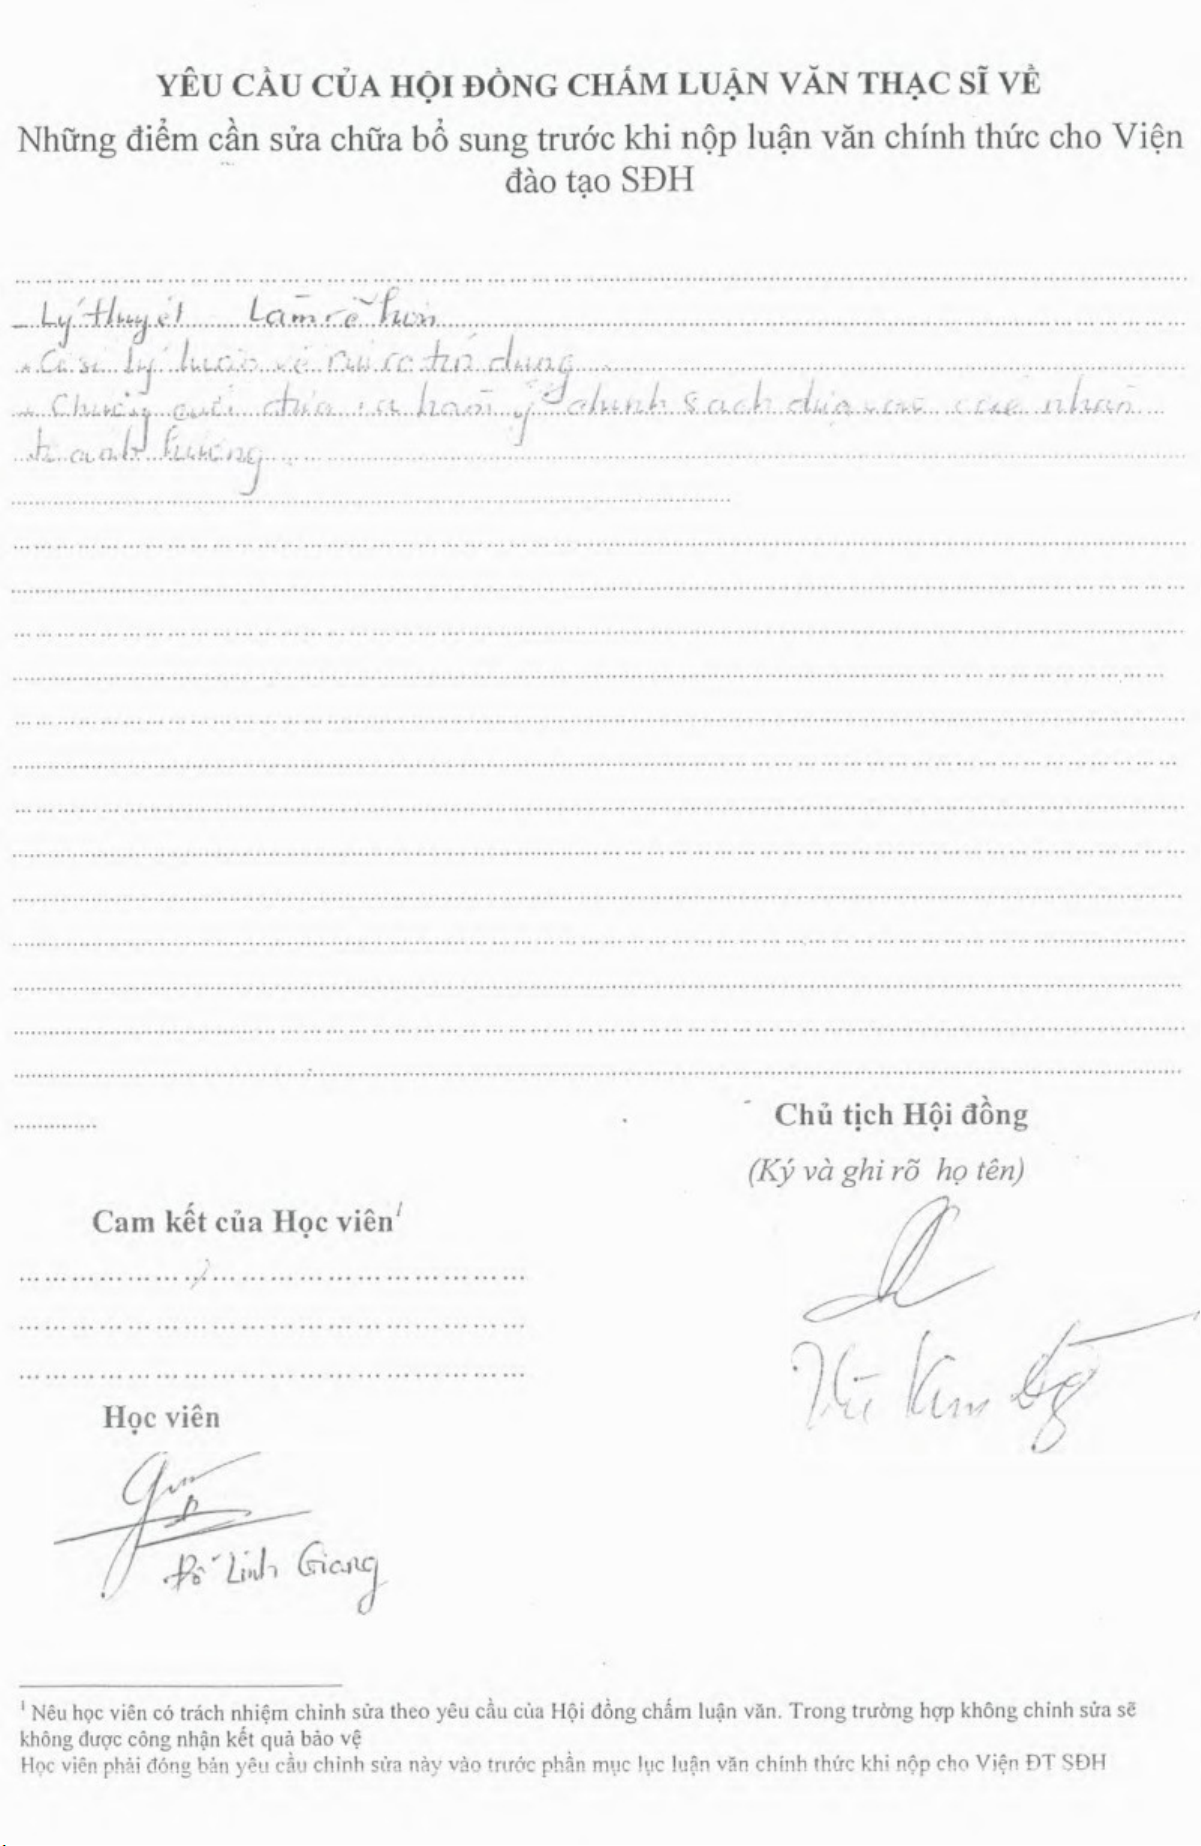 YÊU CẦU CỦA HỘI ĐỒNG CHẤM LUẬN VĂN THẠC SĨ VỀ
Những điểm cần sửa chữa bổ sung trước khi nộp luận văn chính thức cho Viện
đào tạo SĐH
- Lý thuyết làm rõ hơn
- Cơ sở lý luận về rủi ro tín dụng
- Chương cuối đưa ra hàm ý chính sách dựa vào các nhân
tố ảnh hưởng
Chủ tịch Hội đồng
(Ký và ghi rõ họ tên)
Cam kết của Học viên¹
Vũ Kim
Học viên
Đỗ Linh Giang
¹ Nêu học viên có trách nhiệm chỉnh sửa theo yêu cầu của Hội đồng chấm luận văn. Trong trường hợp không chỉnh sửa sẽ
không được công nhận kết quả bảo vệ
Học viên phải đóng bản yêu cầu chỉnh sửa này vào trước phần mục lục luận văn chính thức khi nộp cho Viện ĐT SĐH